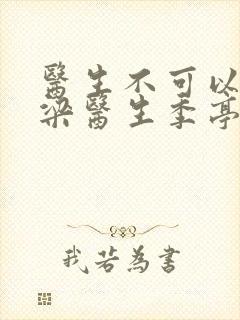 醫生不可以
梁醫生季亭
我若為書